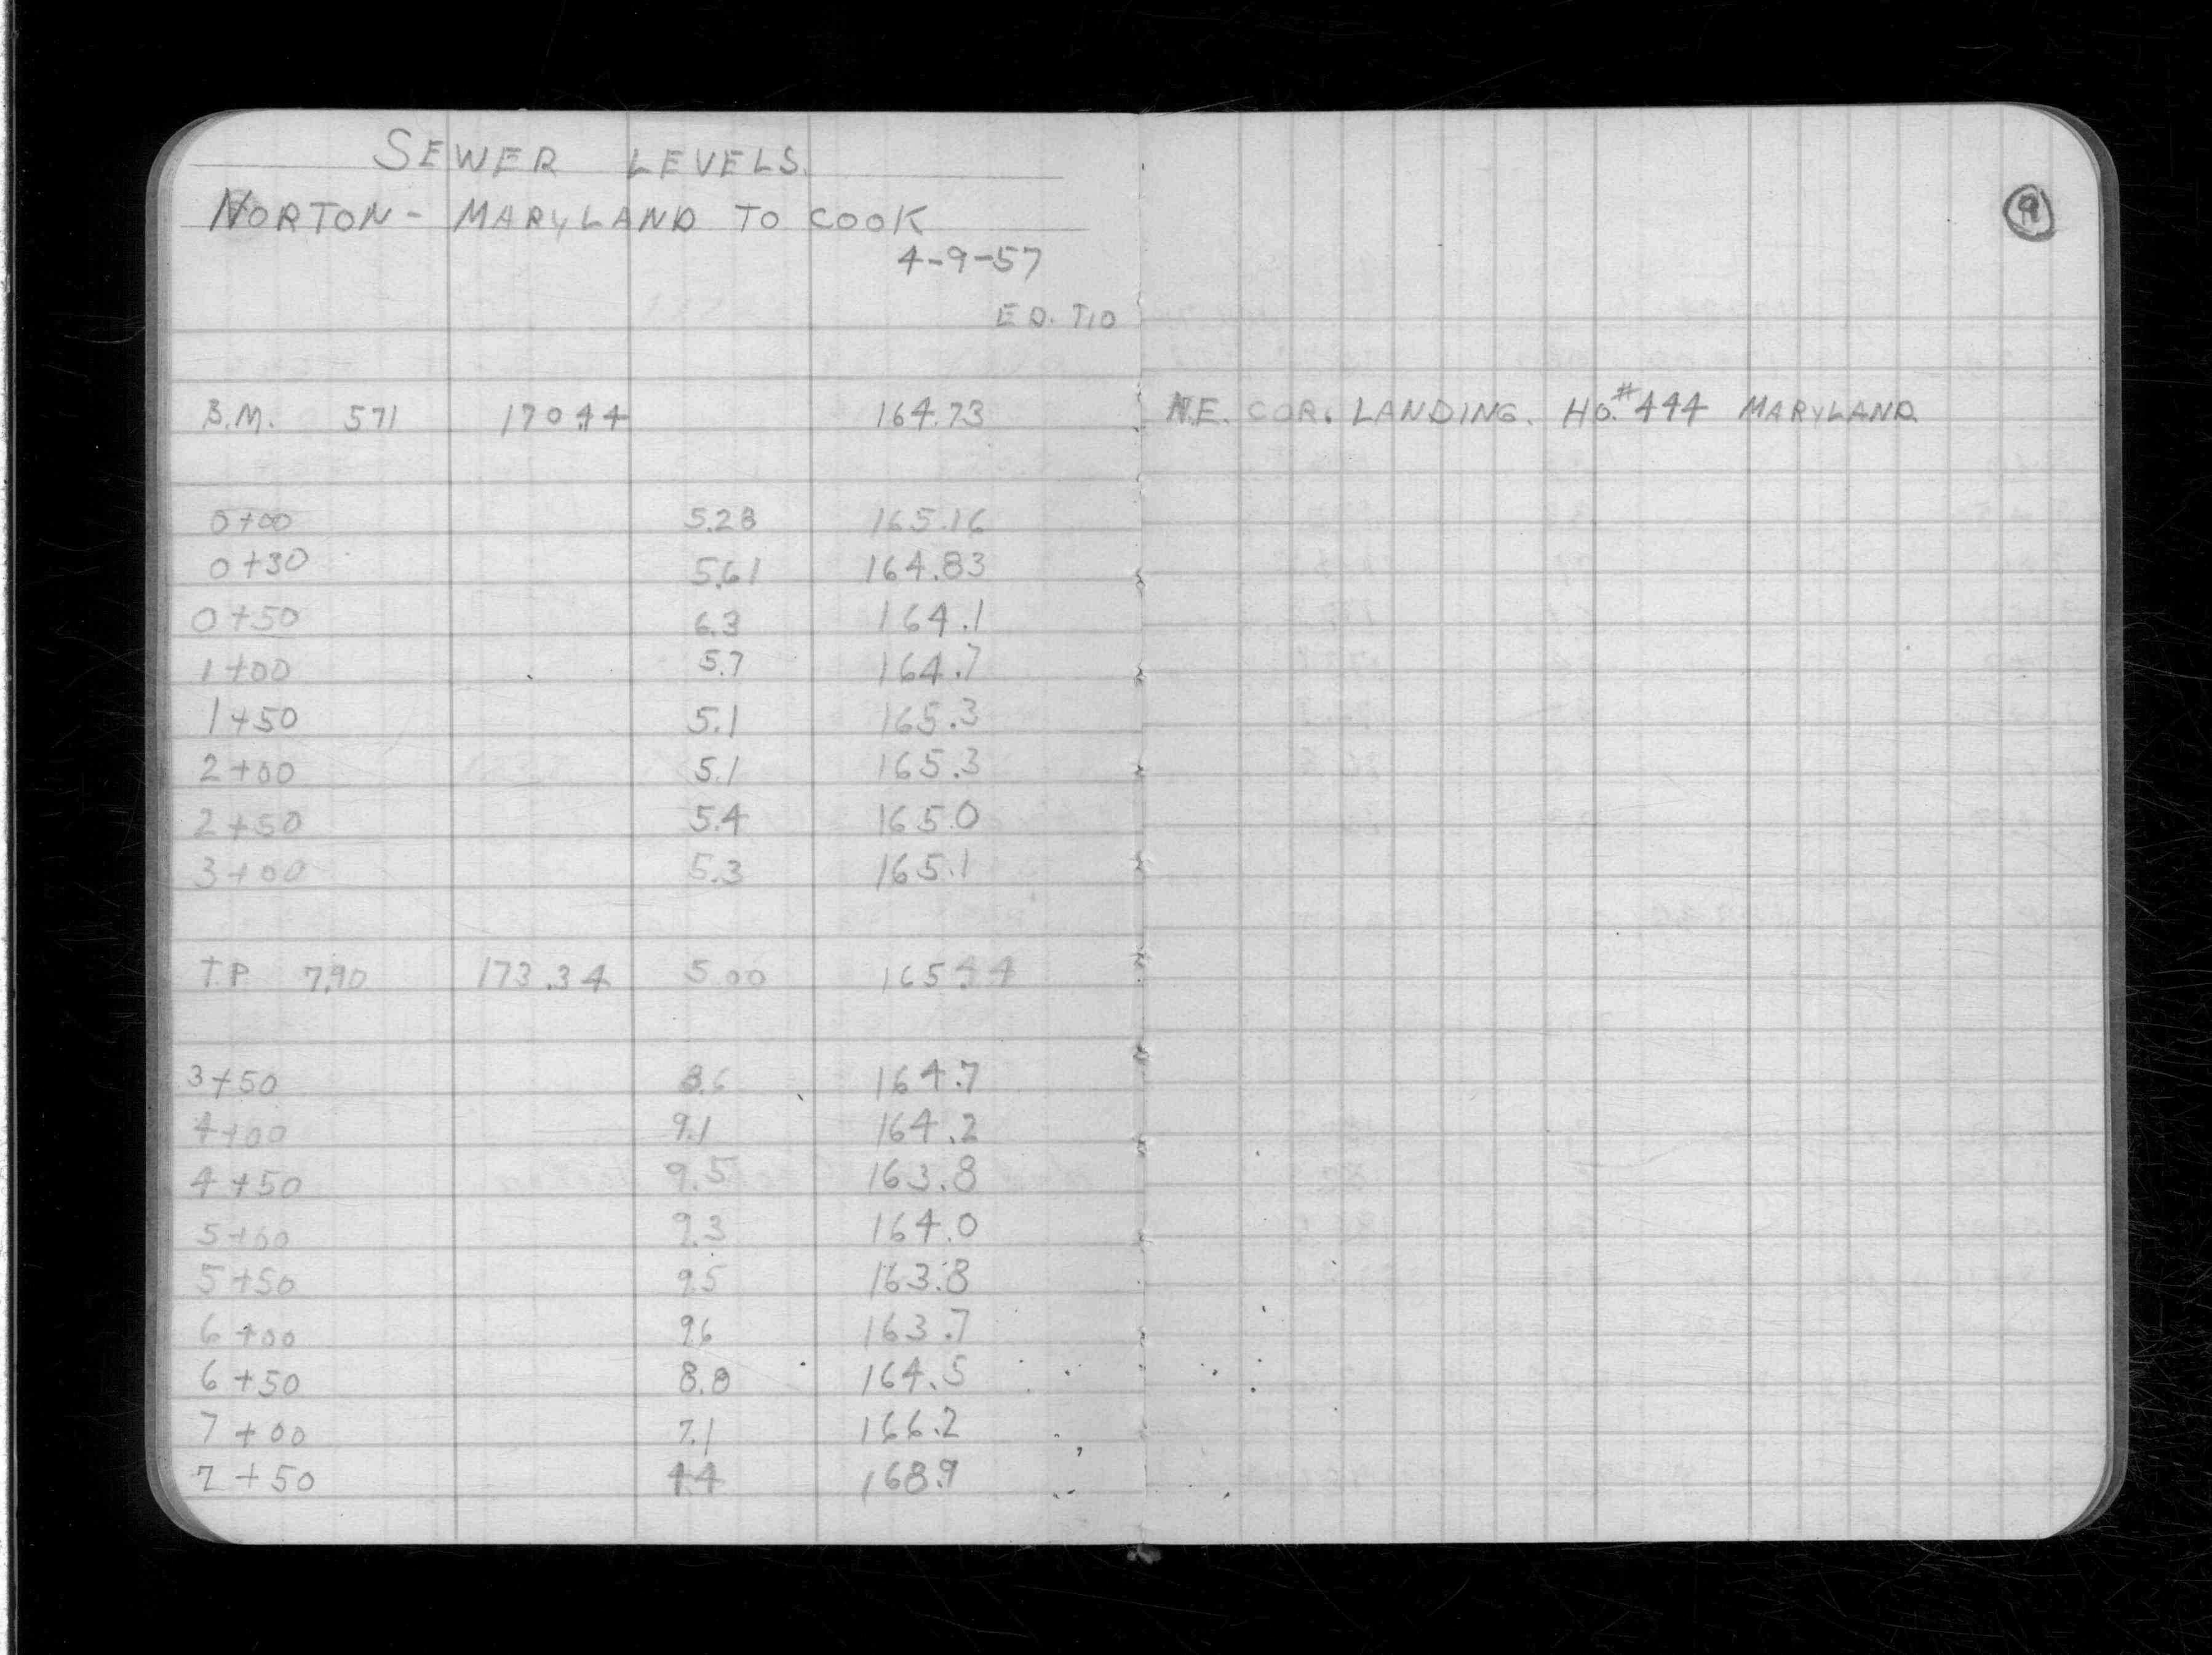 SEWER LEVELS.
NORTON - MARYLAND TO COOK
4-9-57
ED. TIO
9
B.M. 571 170.44 164.73 N.E. COR. LANDING. HO. #444 MARYLAND.
0+00 5.28 165.16
0+30 5.61 164.83
0+50 6.3 164.1
1+00 5.7 164.7
1+50 5.1 165.3
2+00 5.1 165.3
2+50 5.4 165.0
3+00 5.3 165.1
T.P. 7.90 173.34 5.00 165.44
3+50 8.6 164.7
4+00 9.1 164.2
4+50 9.5 163.8
5+00 9.3 164.0
5+50 9.5 163.8
6+00 9.6 163.7
6+50 8.8 164.5
7+00 7.1 166.2
7+50 4.4 168.9